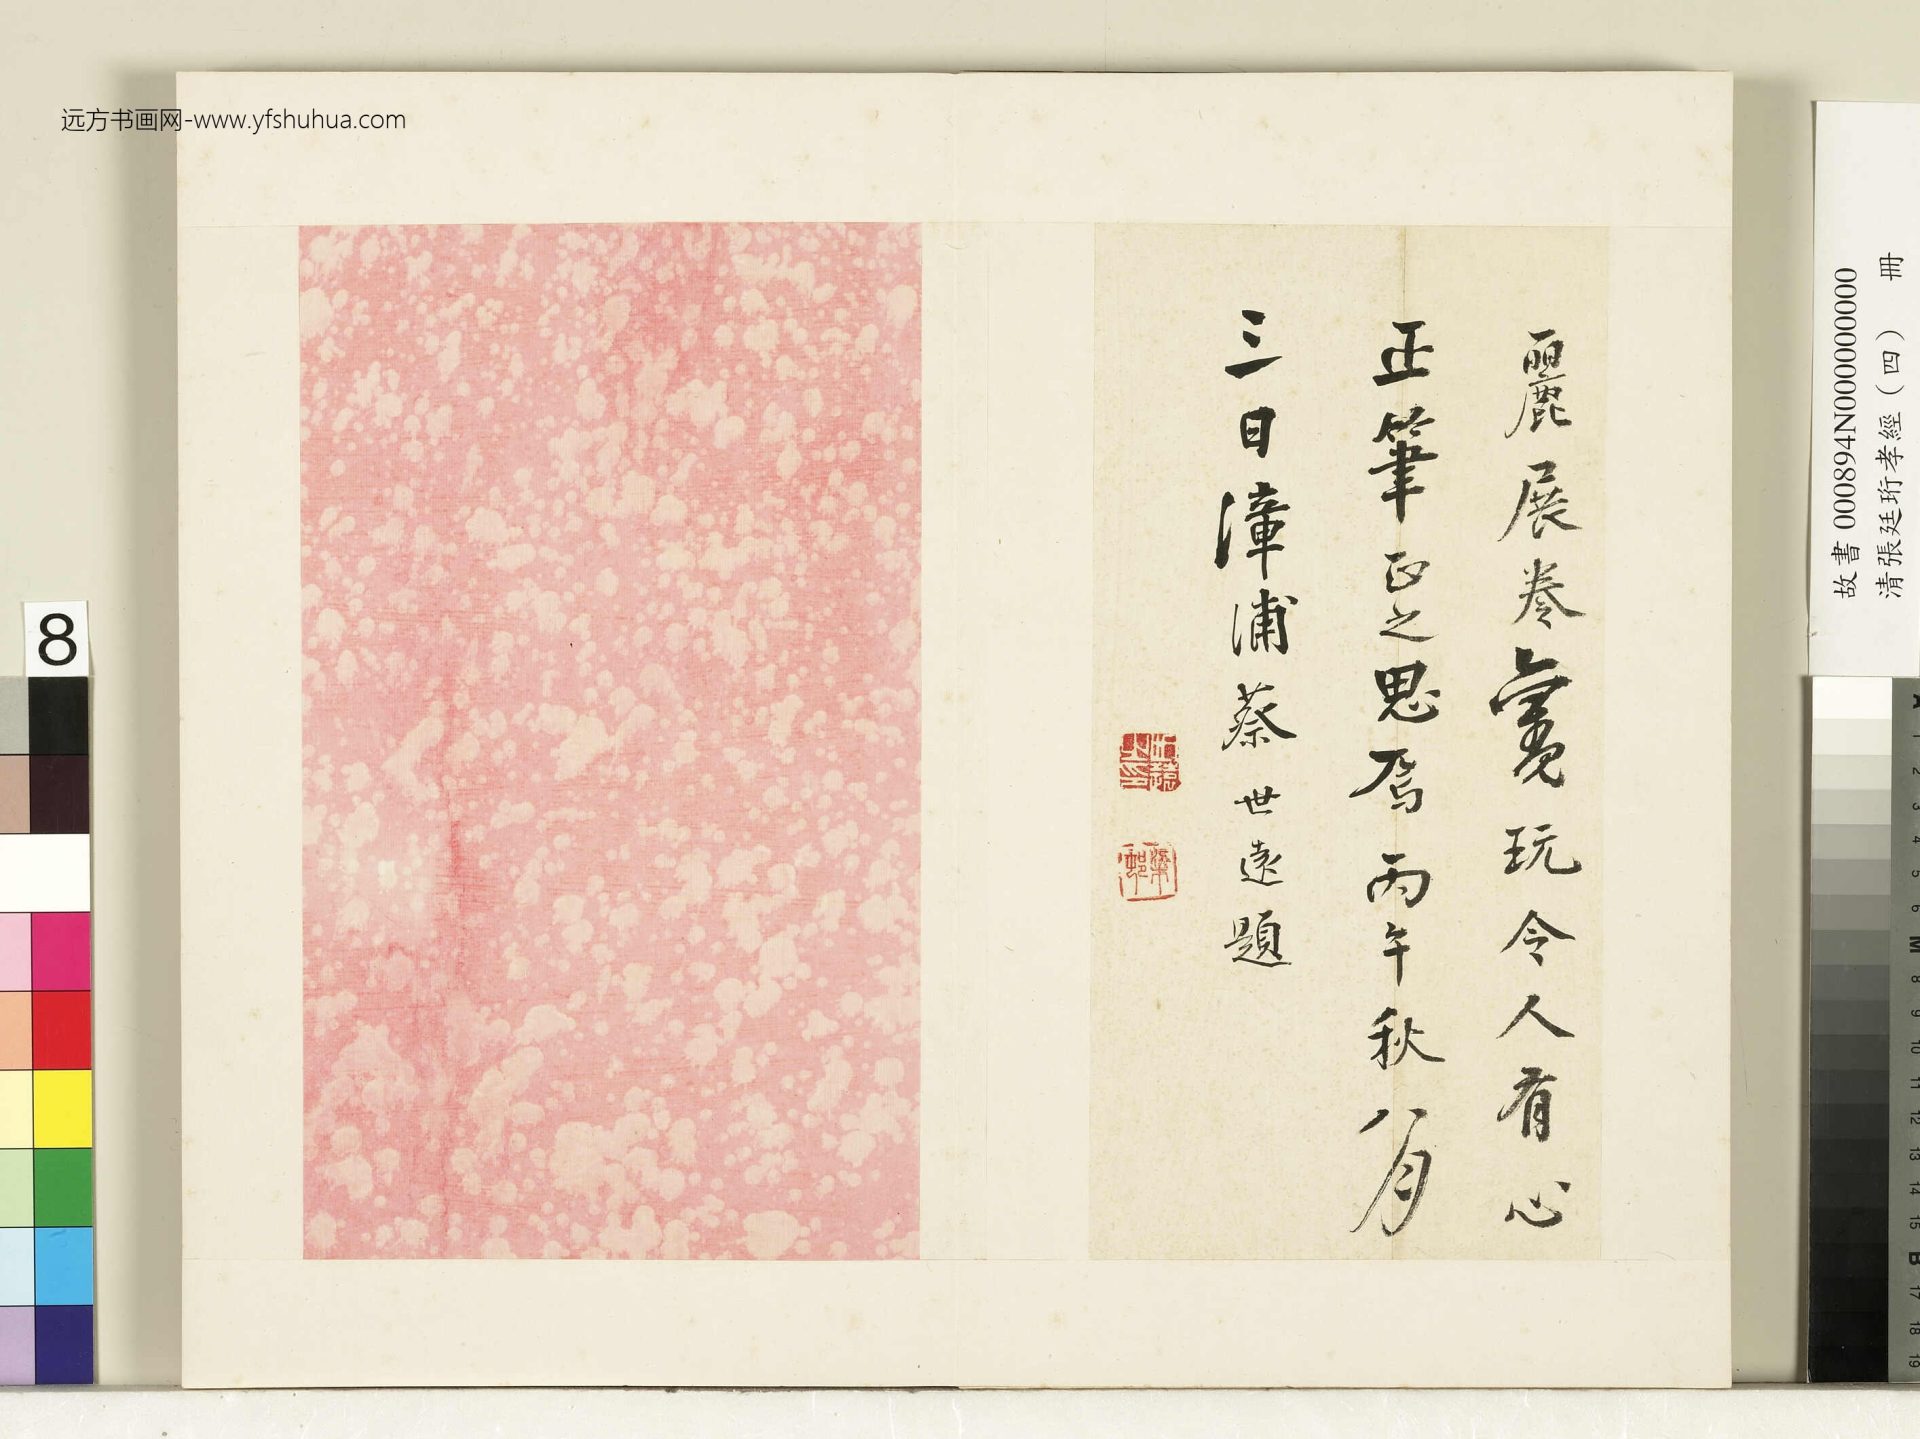 麗展卷賞玩令人有心
正筆正之思焉丙午秋八月
三日漳浦蔡世遠題
远方书画网-www.yfshuhua.com
故書 000894N000000000
清張廷珩孝經（四） 冊
8